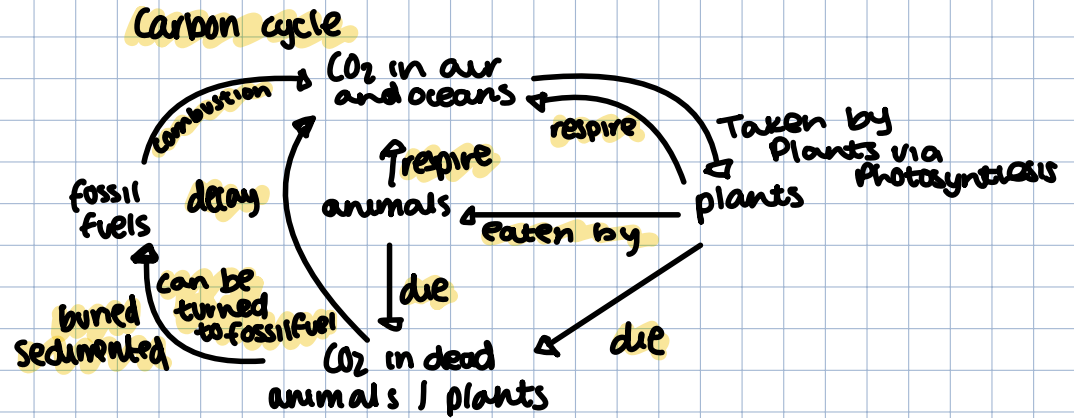 Carbon cycle
CO₂ in air
and oceans
combustion
respire
Taken by
Plants via
Photosynthesis
respire
fossil
fuels
decay
animals
plants
eaten by
can be
turned
to fossil fuel
buried
sedimented
die
die
CO₂ in dead
animals / plants